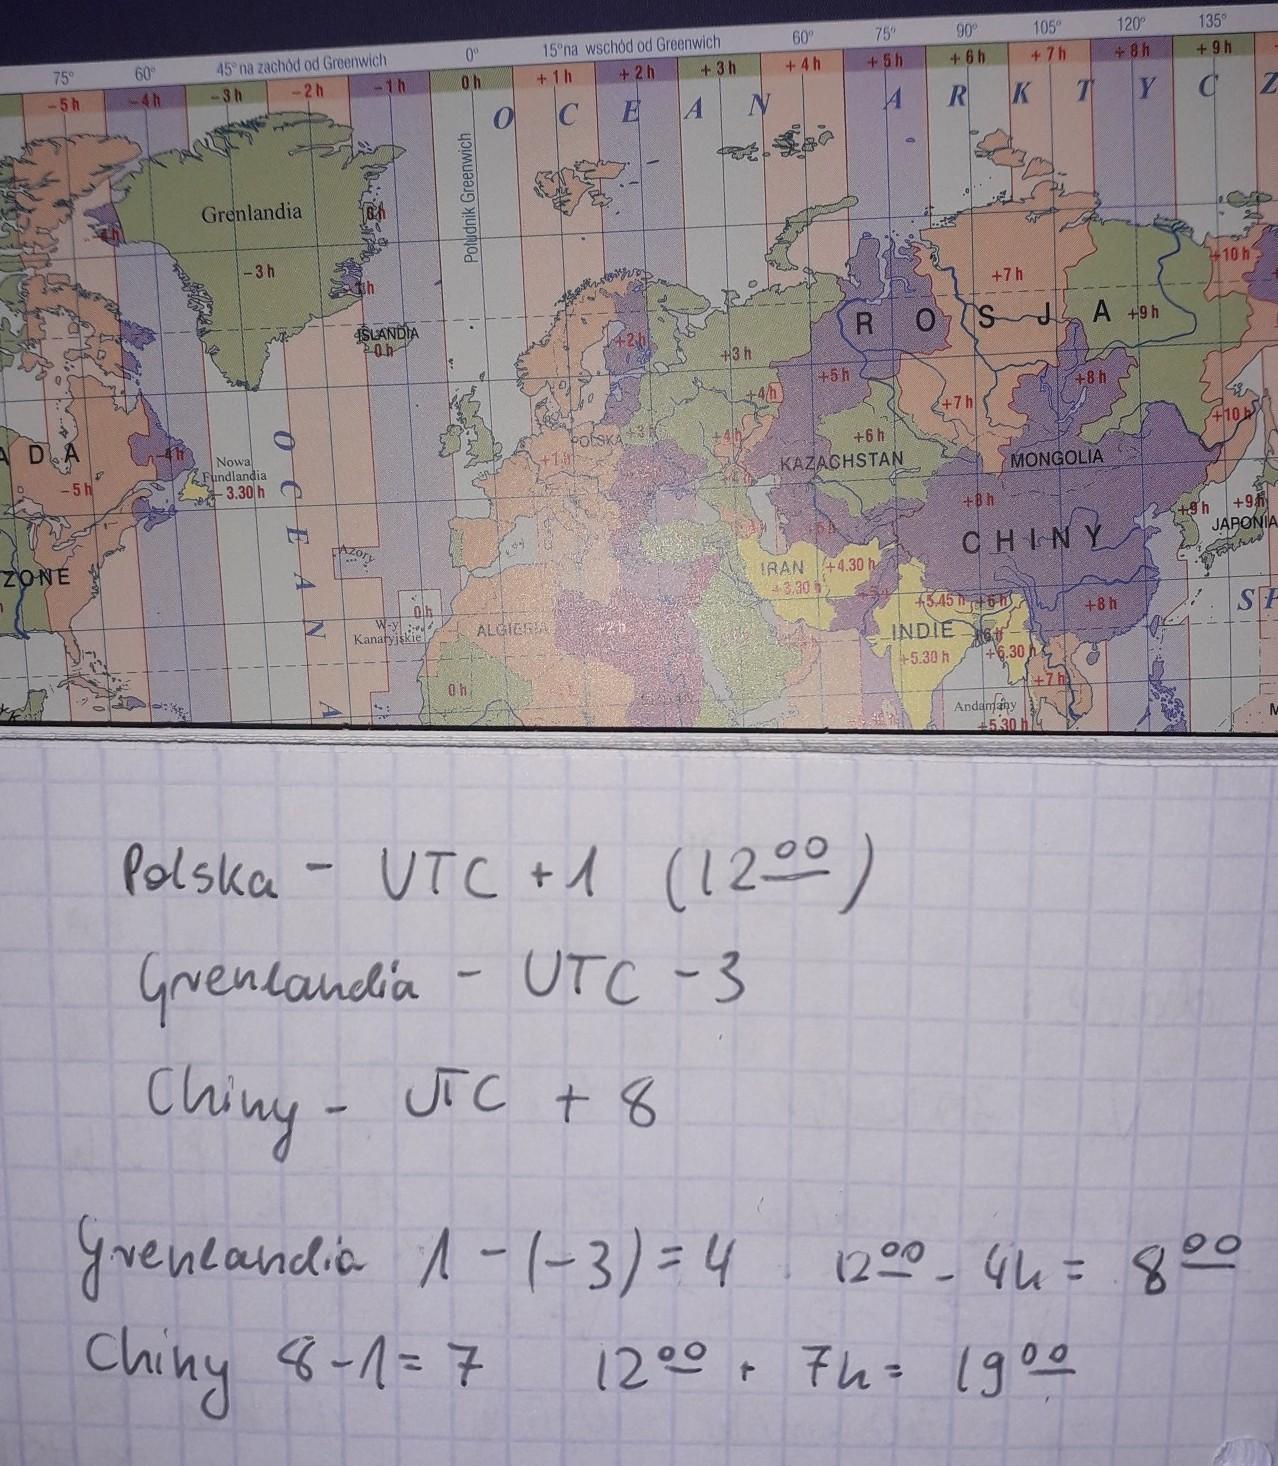 75° 60° 45° na zachód od Greenwich 0° 15° na wschód od Greenwich 60° 75° 90° 105° 120° 135°
-5 h -4 h -3 h -2 h -1 h 0 h +1 h +2 h +3 h +4 h +5 h +6 h +7 h +8 h +9 h
O C E A N A R K T Y C Z
Południk Greenwich
Grenlandia
0 h
-4 h
-3 h
+10 h
+7 h
ISLANDIA
0 h
R O S J A
+9 h
+2 h
+3 h
+5 h
+8 h
+4 h
+7 h
+10 h
POLSKA
+3 h
+4 h
+6 h
A D A
-4 h
+1 h
KAZACHSTAN
MONGOLIA
Nowa
Fundlandia
- 3.30 h
-5 h
+8 h
+9 h
+9 h
JAPONIA
O C E A N A
CHINY
+5 h
Azory
ZONE
IRAN
+4.30 h
+3.30 h
+5.45 h
+6 h
+8 h
0 h
W-y
Kanaryjskie
ALGIERIA
+2 h
INDIE
+6 h
+6.30 h
+5.30 h
+7 h
0 h
Andamany
+5.30 h
Polska - UTC +1 (12⁰⁰)
Grenlandia - UTC -3
Chiny - UTC + 8
Grenlandia 1-(-3)=4 12⁰⁰ - 4h = 8⁰⁰
Chiny 8-1=7 12⁰⁰ + 7h = 19⁰⁰